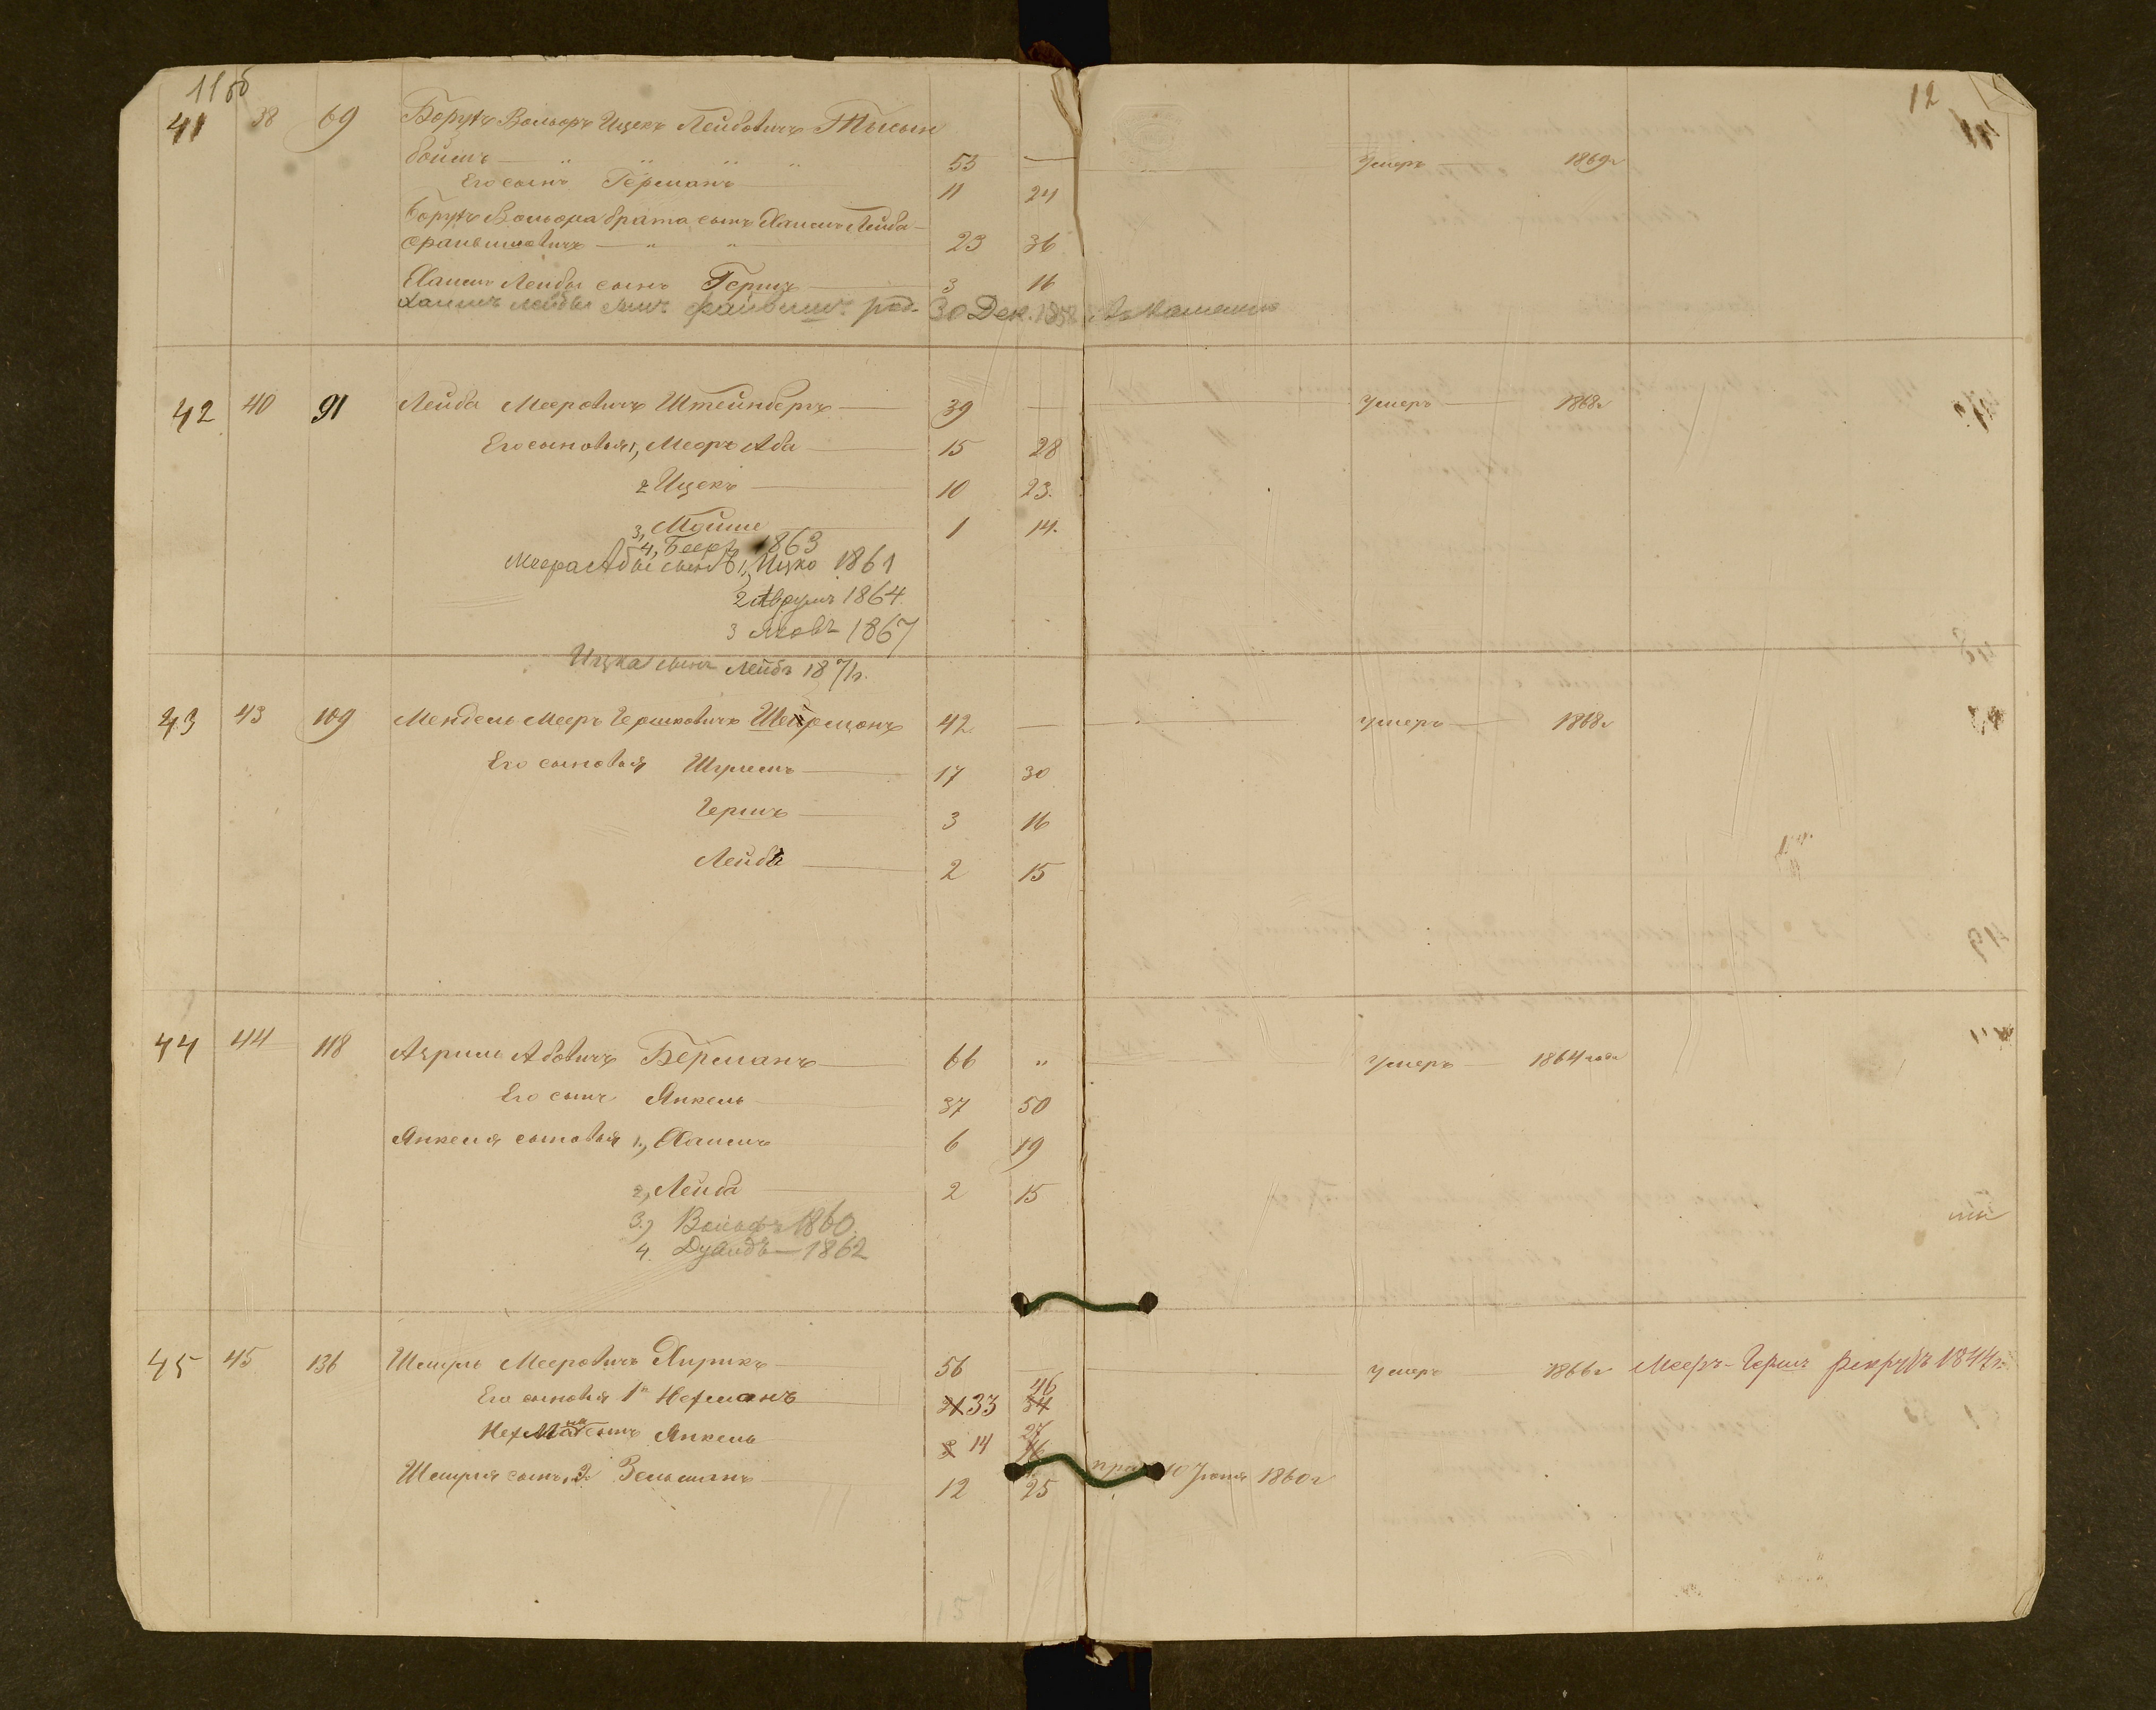 11 об
12
41 38 69 Борухъ Вольфъ Ицекъ Лейбовичъ Тысым
боймъ — 53 — Умеръ — 1869г
Его сынъ Германъ — 11 24
Борухъ Вольфа брата сынъ Хаимъ Лейба
Файвишовичъ — 23 36
Хаимъ Лейбы сынъ Гершъ — 3 16
Хаимъ Лейбы сынъ Файвишъ род. 30 Дек. 1858
42 40 91 Лейба Мееровичъ Штейнбергъ — 39 — Умеръ — 1868г
Его сыновья 1, Мееръ Аба — 15 28
2 Ицекъ — 10 23.
3, Мойше — 1 14.
4, Беръ 1863
Меера Абы сыновья 1, Ицко 1861
2 Аврумъ 1864.
3 Яковъ 1867
Ицка сынъ Лейбъ 1871г.
43 43 109 Мендель Мееръ Гершковичъ 42 — умеръ — 1868г
Его сыновья Шулимъ — 17 30
Гершъ — 3 16
Лейба — 2 15
44 44 118 Азриль Абовичъ Берманъ — 66 " Умеръ — 1864 года
Его сынъ Янкель — 37 50
Янкеля сыновья 1., Хаимъ 6 19
2, Лейба — 2 15
3.) Вольфъ 1860.
4. Дувидъ — 1862
45 45 136 Шмуль Мееровичъ Хирикъ — 56 — умеръ 1866г Мееръ-Гершъ рекрутъ 1844г.
Его сыновья 1й Нехманъ 21 33 34 46
Нехмана сынъ Янкель 3 14 16 27
Шмуля сынъ 2й Зельманъ — 12 25 10 Июня 1860г